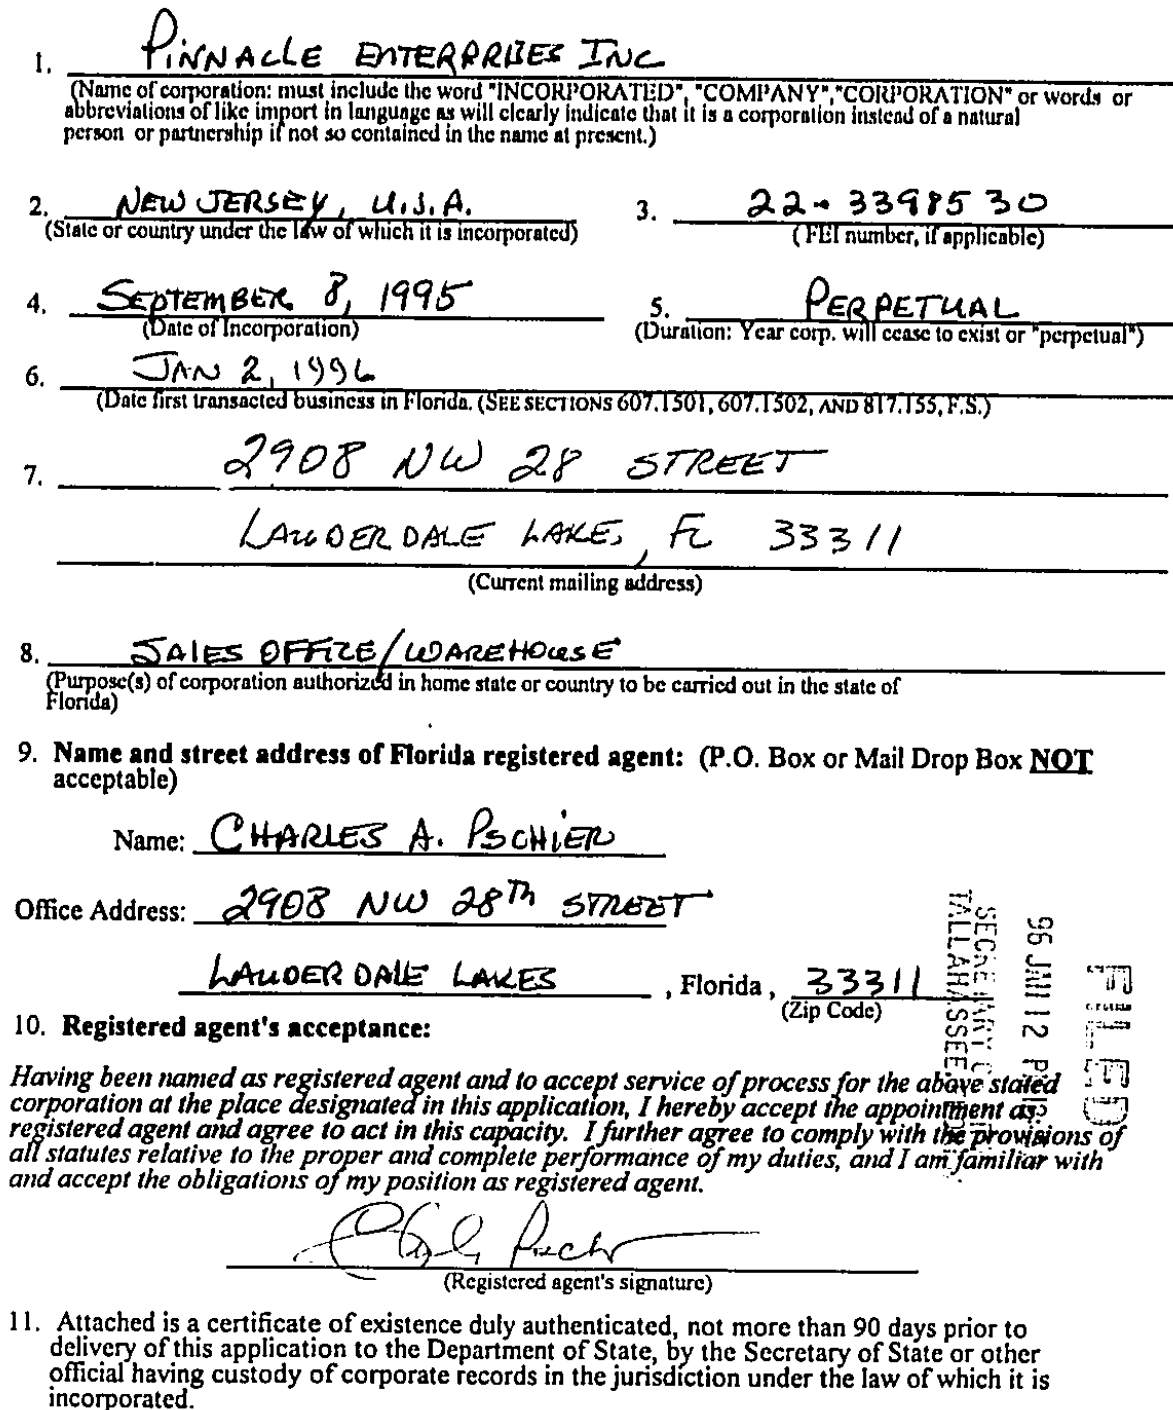 1. PINNACLE ENTERPRISES INC
(Name of corporation: must include the word "INCORPORATED", "COMPANY","CORPORATION" or words or
abbreviations of like import in language as will clearly indicate that it is a corporation instead of a natural
person or partnership if not so contained in the name at present.)
2. NEW JERSEY, U.S.A. 3. 22-3398530
(State or country under the law of which it is incorporated) (FEI number, if applicable)
4. SEPTEMBER 8, 1995 5. PERPETUAL
(Date of Incorporation) (Duration: Year corp. will cease to exist or "perpetual")
6. JAN 2, 1996
(Date first transacted business in Florida. (SEE SECTIONS 607.1501, 607.1502, AND 817.155, F.S.)
7. 2908 NW 28 STREET
LAUDERDALE LAKES, FL 33311
(Current mailing address)
8. SALES OFFICE/WAREHOUSE
(Purpose(s) of corporation authorized in home state or country to be carried out in the state of
Florida)
9. Name and street address of Florida registered agent: (P.O. Box or Mail Drop Box NOT
acceptable)
Name: CHARLES A. PSCHIER
Office Address: 2908 NW 28Th STREET
LAUDERDALE LAKES, Florida, 33311
(Zip Code)
FILED
96 JAN 12 P
SECRETARY
TALLAHASSEE
10. Registered agent's acceptance:
Having been named as registered agent and to accept service of process for the above stated
corporation at the place designated in this application, I hereby accept the appointment as
registered agent and agree to act in this capacity. I further agree to comply with the provisions of
all statutes relative to the proper and complete performance of my duties, and I am familiar with
and accept the obligations of my position as registered agent.
(Registered agent's signature)
11. Attached is a certificate of existence duly authenticated, not more than 90 days prior to
delivery of this application to the Department of State, by the Secretary of State or other
official having custody of corporate records in the jurisdiction under the law of which it is
incorporated.